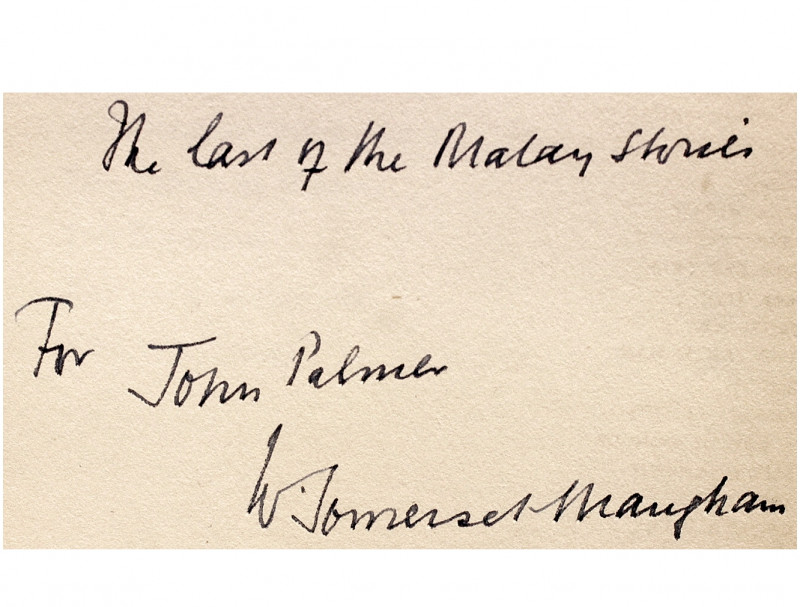 The last of the Malay Stories
For John Palmer
W. Somerset Maugham